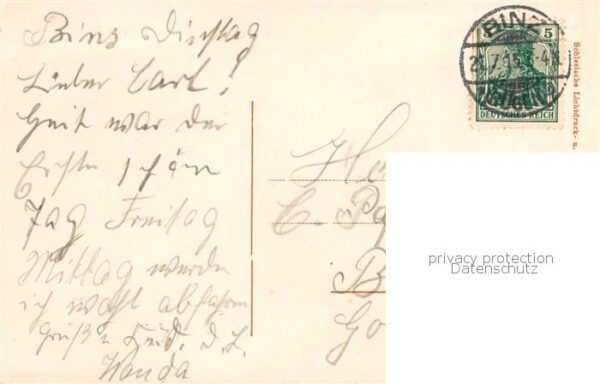 Binz Dienstag
Lieber Carl!
Heit war der
Erste schön
Tag Freitag
Mittag werde
ich wohl abfahren
Gruß u
Wanda
BINZ
7.15
(RÜGEN)
5
DEUTSCHES REICH
Schlesische Lichtdruck- u.
H
C. P
B
Go
privacy protection
Datenschutz